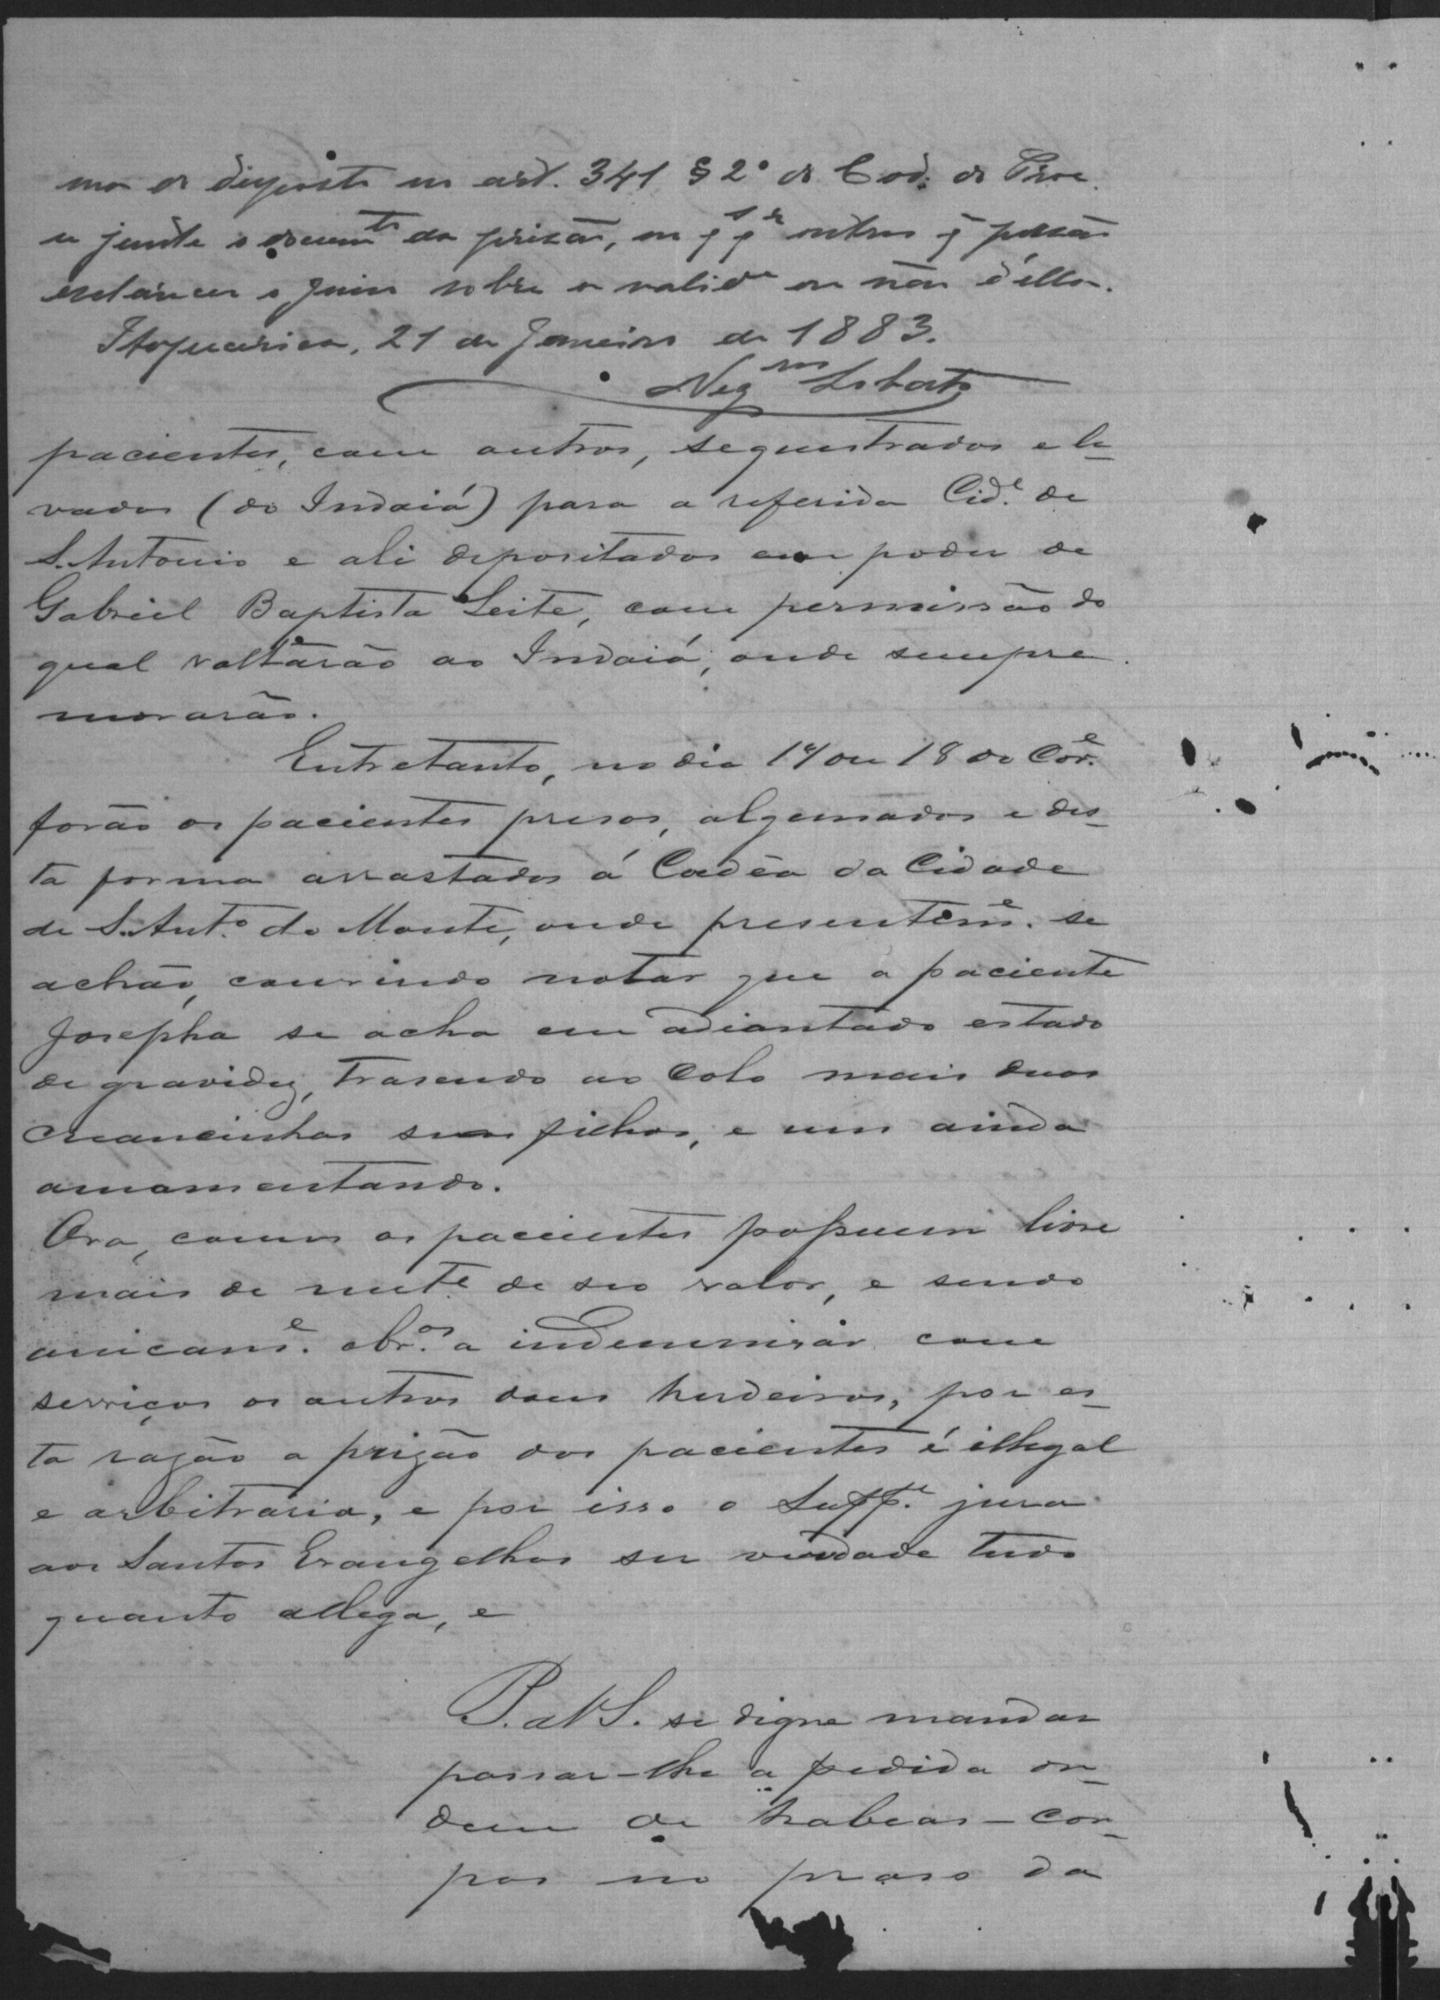 mos do disposto no art. 341 § 2º do Cod. do Proc.
e junte o documto da prisão, ou outros q̃ possão
esclarecer o Juiz sobre a valide ou não d'ella.
Itapecerica, 21 de Janeiro de 1883.
Lobato
pacientes, com outros, sequestrados e le-
vados (do Indaiá) para a referida Cid.e de
S. Antonio e ali depositados em poder de
Gabriel Baptista Leite, com permissão do
qual voltárão ao Indaiá, onde sempre
morarão.
Entretanto, no dia 17 ou 18 do Cor.e
forão os pacientes presos, algemados e des-
ta forma arrastados á Cadêa da Cidade
de S. Ant.o do Monte, onde presentem.e se
achão, convindo notar que a paciente
Josepha se acha em adiantado estado
de gravidez, trasendo ao Colo mais duas
creancinhas seus filhos, e um ainda
amamentando.
Ora, como os pacientes possuem livre
mais de met.e de seo valor, e sendo
unicam.e obr.os a indemnisar com
serviços os outros dous herdeiros, por es-
ta razão a prizão dos pacientes é illegal
e arbitraria, e por isso o Supp.e jura
aos Santos Evangelhos ser verdade tudo
quanto allega, e
P. a V. S. se digne mandar
passar-lhe a pedida or-
dem de habeas-cor-
pos no praso da